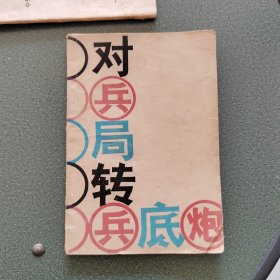 对
兵
局
转
兵底炮